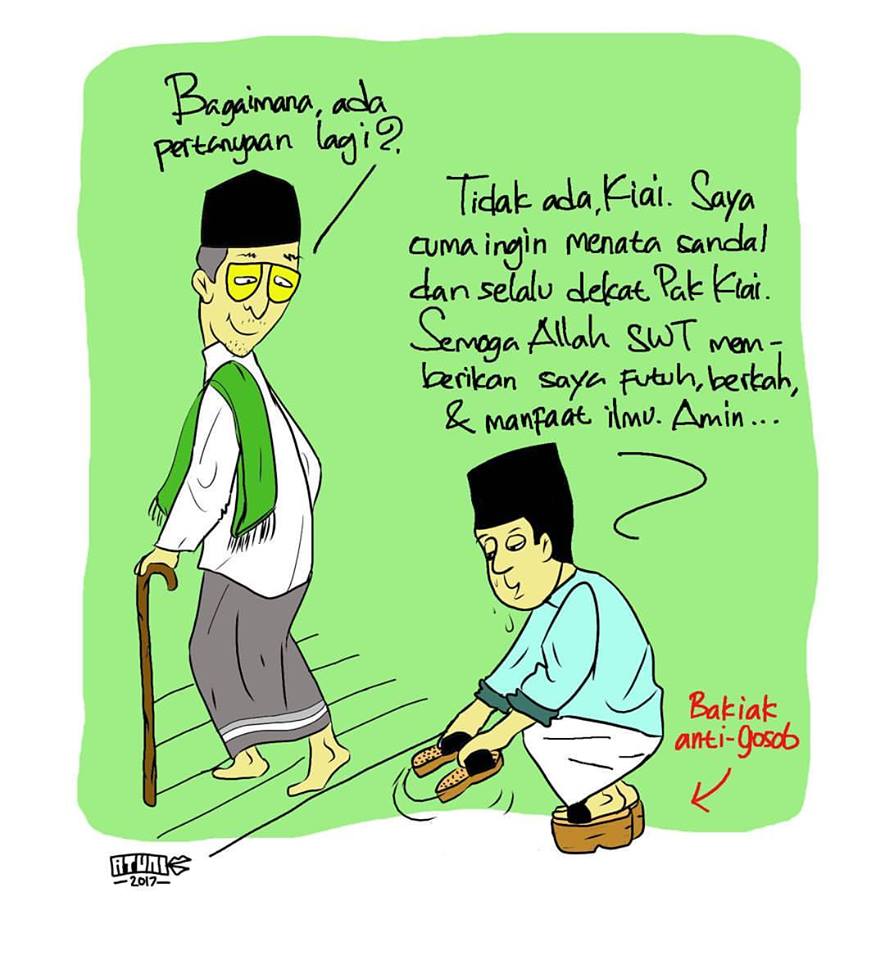 Bagaimana, ada
pertanyaan lagi?
Tidak ada, Kiai. Saya
cuma ingin menata sandal
dan selalu dekat Pak Kiai.
Semoga Allah SWT mem-
berikan saya Futuh, berkah,
& manfaat ilmu. Amin...
Bakiak
anti-gosob
-2017-